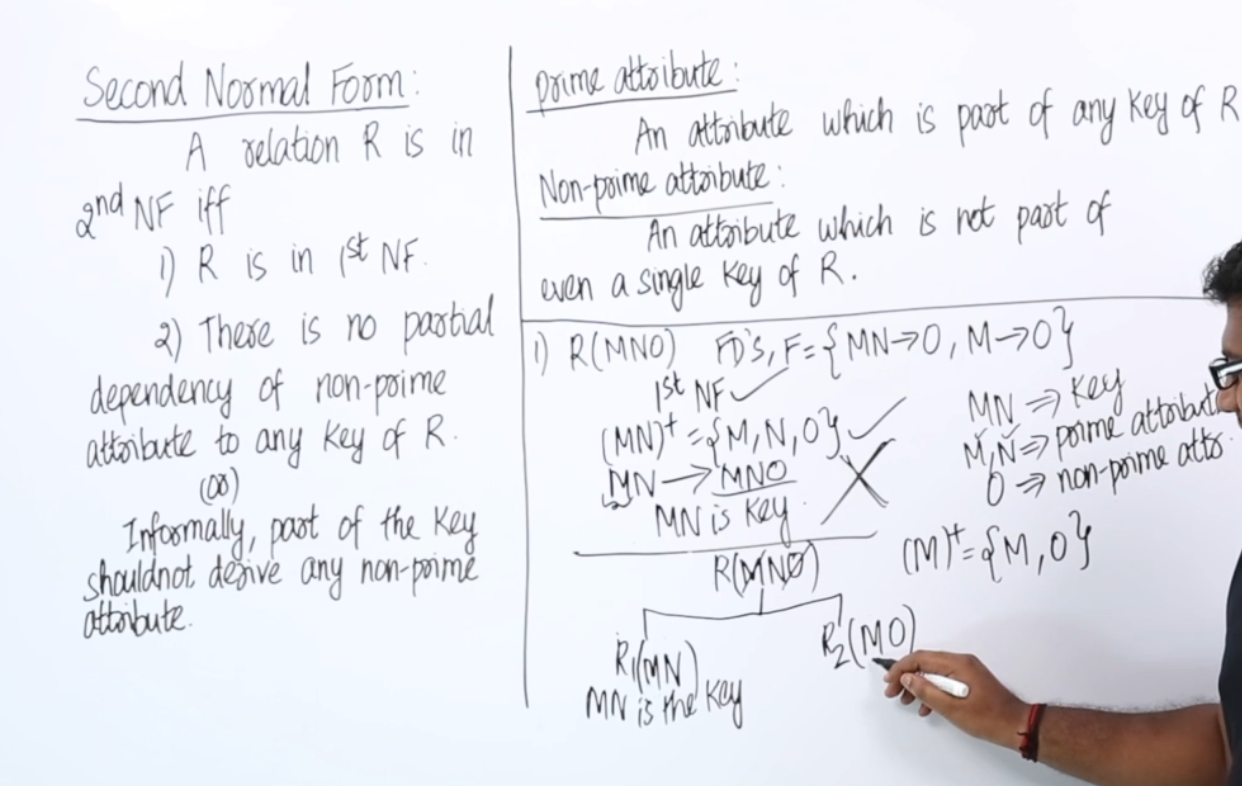 Second Normal Form:
A relation R is in
2nd NF iff
1) R is in 1st NF.
2) There is no partial
dependency of non-prime
attribute to any key of R.
(or)
Informally, part of the key
shouldnot derive any non-prime
attribute.
prime attribute:
An attribute which is part of any key of R
Non-prime attribute:
An attribute which is not part of
even a single key of R.
1) R(MNO) FD's, F={MN→O, M→O}
1st NF ✓
(MN)⁺={M,N,O} ✓
MN→MNO
MN is key.
MN ⇒ key
M,N ⇒ prime attribut
O ⇒ non-prime attr.
R(MNO)
(M)⁺={M,O}
R1(MN)
MN is the key
R2(MO)